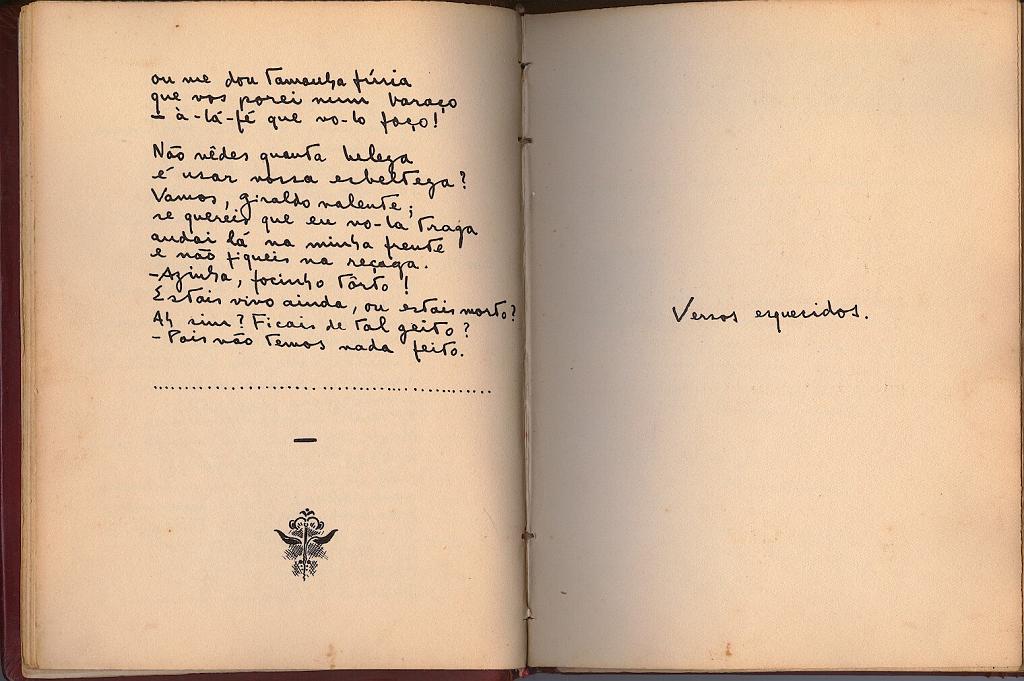 ou me dou tamanha fúria
que vos porei num baraço
- à-lá-fé que vo-lo faço!
Não vêdes quanta beleza
é usar vossa esbelteza?
Vamos, Giraldo valente;
se quereis que eu vo-la traga
andai lá na minha frente
e não fiqueis na reçaga.
-Azinha, focinho tôrto!
Estais vivo ainda, ou estais morto?
Ah sim? Ficais de tal geito?
-Pois não temos nada feito.
Versos esquecidos.